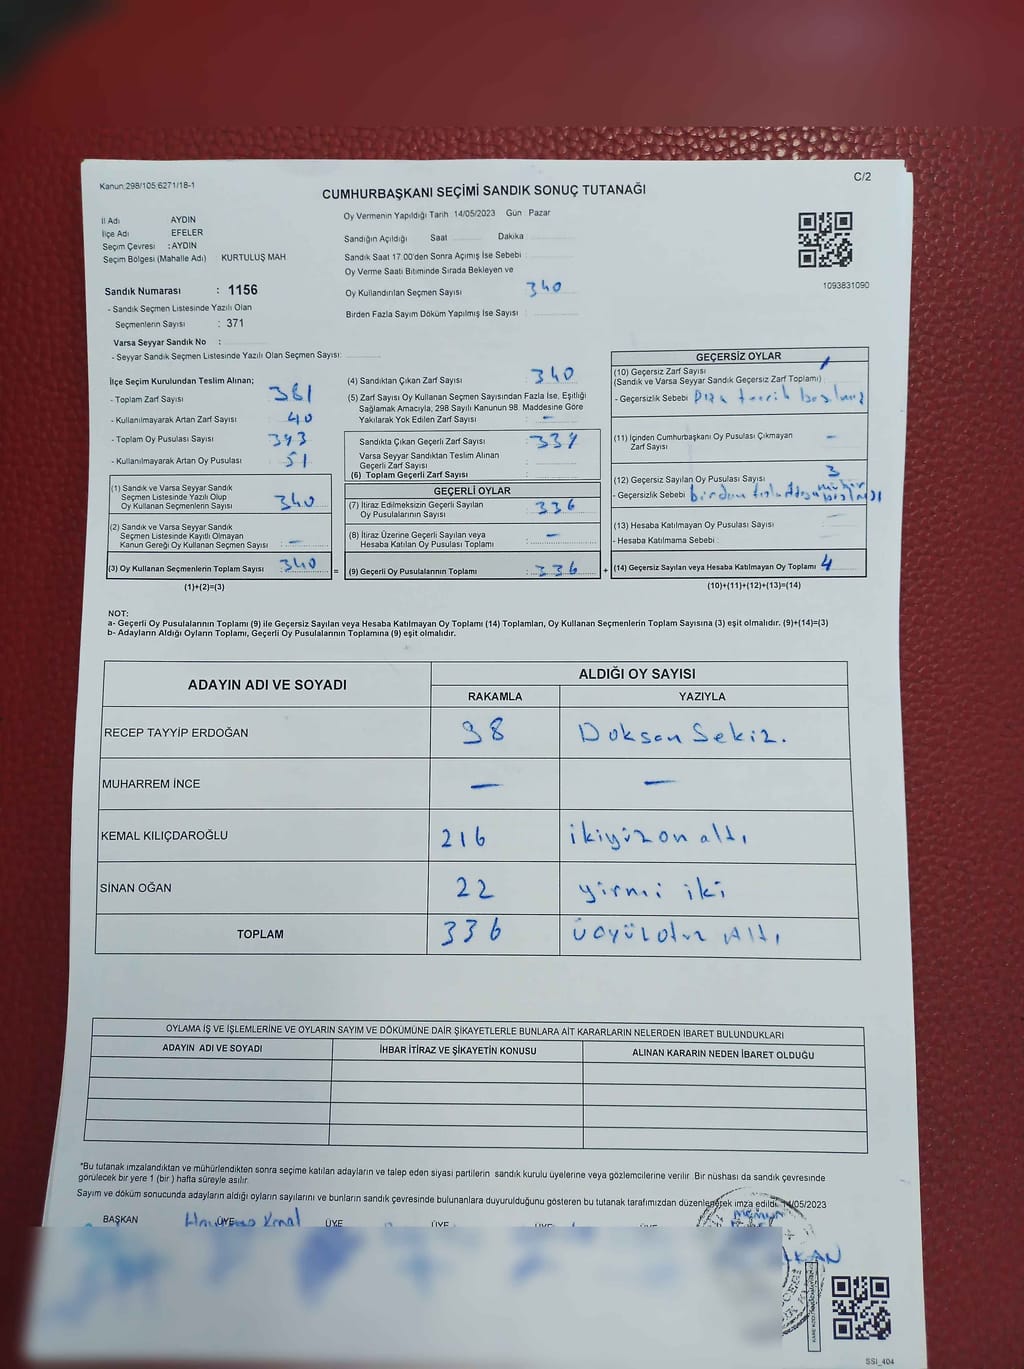 Kanun:298/105.6271/18-1
C/2
CUMHURBAŞKANI SEÇİMİ SANDIK SONUÇ TUTANAĞI
İl Adı AYDIN
İlçe Adı EFELER
Seçim Çevresi : AYDIN
Seçim Bölgesi (Mahalle Adı) KURTULUŞ MAH
Sandık Numarası : 1156
- Sandık Seçmen Listesinde Yazılı Olan
Seçmenlerin Sayısı : 371
Varsa Seyyar Sandık No :
- Seyyar Sandık Seçmen Listesinde Yazılı Olan Seçmen Sayısı:
Oy Vermenin Yapıldığı Tarih 14/05/2023 Gün Pazar
Sandığın Açıldığı Saat Dakika
Sandık Saat 17.00'den Sonra Açımış İse Sebebi
Oy Verme Saati Bitiminde Sırada Bekleyen ve
Oy Kullandırılan Seçmen Sayısı 340
Birden Fazla Sayım Döküm Yapılmış İse Sayısı :
1093831090
İlçe Seçim Kurulundan Teslim Alınan;
- Toplam Zarf Sayısı 381
- Kullanılmayarak Artan Zarf Sayısı : 40
- Toplam Oy Pusulası Sayısı 393
- Kullanılmayarak Artan Oy Pusulası 51
(1) Sandık ve Varsa Seyyar Sandık
Seçmen Listesinde Yazılı Olup
Oy Kullanan Seçmenlerin Sayısı 340
(2) Sandık ve Varsa Seyyar Sandık
Seçmen Listesinde Kayıtlı Olmayan
Kanun Gereği Oy Kullanan Seçmen Sayısı : —
(3) Oy Kullanan Seçmenlerin Toplam Sayısı : 340 =
(1)+(2)=(3)
(4) Sandıktan Çıkan Zarf Sayısı 340
(5) Zarf Sayısı Oy Kullanan Seçmen Sayısından Fazla İse, Eşitliği
Sağlamak Amacıyla; 298 Sayılı Kanunun 98. Maddesine Göre
Yakılarak Yok Edilen Zarf Sayısı : —
Sandıkta Çıkan Geçerli Zarf Sayısı : 339
Varsa Seyyar Sandıktan Teslim Alınan
Geçerli Zarf Sayısı :
(6) Toplam Geçerli Zarf Sayısı :
GEÇERLİ OYLAR
(7) İtiraz Edilmeksizin Geçerli Sayılan
Oy Pusulalarının Sayısı : 336
(8) İtiraz Üzerine Geçerli Sayılan veya
Hesaba Katılan Oy Pusulası Toplamı : —
(9) Geçerli Oy Pusulalarının Toplamı : 336 +
GEÇERSİZ OYLAR
(10) Geçersiz Zarf Sayısı 1
(Sandık ve Varsa Seyyar Sandık Geçersiz Zarf Toplamı)
- Geçersizlik Sebebi
(11) İçinden Cumhurbaşkanı Oy Pusulası Çıkmayan
Zarf Sayısı —
(12) Geçersiz Sayılan Oy Pusulası Sayısı 3
- Geçersizlik Sebebi birden mühür
(13) Hesaba Katılmayan Oy Pusulası Sayısı
- Hesaba Katılmama Sebebi :
(14) Geçersiz Sayılan veya Hesaba Katılmayan Oy Toplamı 4
(10)+(11)+(12)+(13)=(14)
NOT:
a- Geçerli Oy Pusulalarının Toplamı (9) ile Geçersiz Sayılan veya Hesaba Katılmayan Oy Toplamı (14) Toplamları, Oy Kullanan Seçmenlerin Toplam Sayısına (3) eşit olmalıdır. (9)+(14)=(3)
b- Adayların Aldığı Oyların Toplamı, Geçerli Oy Pusulalarının Toplamına (9) eşit olmalıdır.
ADAYIN ADI VE SOYADI
ALDIĞI OY SAYISI
RAKAMLA YAZIYLA
RECEP TAYYİP ERDOĞAN 98 Doksan Sekiz.
MUHARREM İNCE — —
KEMAL KILIÇDAROĞLU 216 ikiyüz on altı
SİNAN OĞAN 22 yirmi iki
TOPLAM 336 üçyüzotuz Altı
OYLAMA İŞ VE İŞLEMLERİNE VE OYLARIN SAYIM VE DÖKÜMÜNE DAİR ŞİKAYETLERLE BUNLARA AİT KARARLARIN NELERDEN İBARET BULUNDUKLARI
ADAYIN ADI VE SOYADI İHBAR İTİRAZ VE ŞİKAYETİN KONUSU ALINAN KARARIN NEDEN İBARET OLDUĞU
*Bu tutanak imzalandıktan ve mühürlendikten sonra seçime katılan adayların ve talep eden siyasi partilerin sandık kurulu üyelerine veya gözlemcilerine verilir. Bir nüshası da sandık çevresinde
görülecek bir yere 1 (bir) hafta süreyle asılır.
Sayım ve döküm sonucunda adayların aldığı oyların sayılarını ve bunların sandık çevresinde bulunanlara duyurulduğunu gösteren bu tutanak tarafımızdan düzenlenerek imza edildi. 14/05/2023
BAŞKAN ÜYE ÜYE ÜYE ÜYE ÜYE
SSI_404